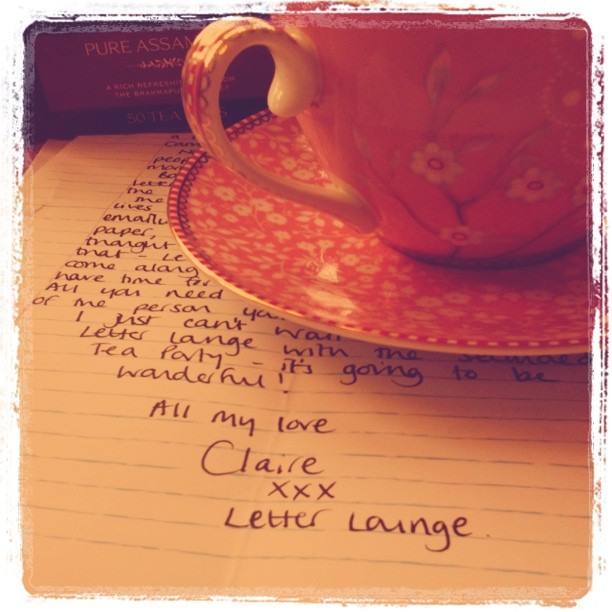 PURE ASSAM
A RICH REFRESHING
THE BRAHMAPU
50 TEA
a
peop
Letter
the
me
lives
emaili
paper,
thought
that - Le
come along
have time for
All you need
of the person you
I just can't wait
Letter Lounge with the
Tea Party - it's going to be
wonderful!
All my love
Claire
xxx
Letter Lounge.